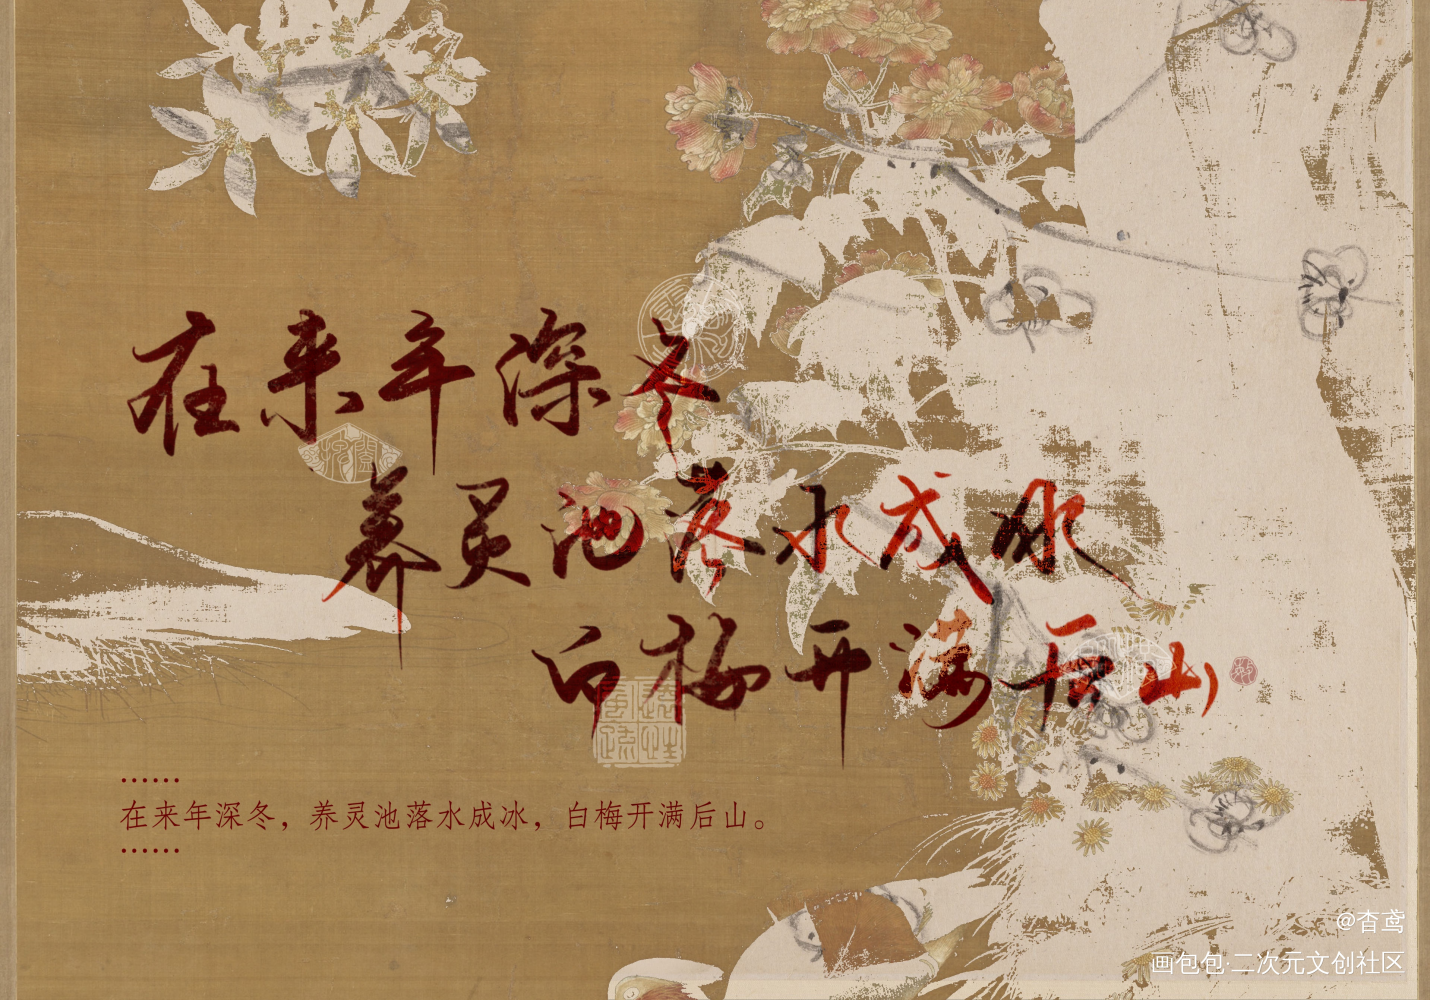 在来年深冬
养灵池落水成冰
白梅开满后山
……
在来年深冬，养灵池落水成冰，白梅开满后山。
……
@杳鸢
画包包·二次元文创社区